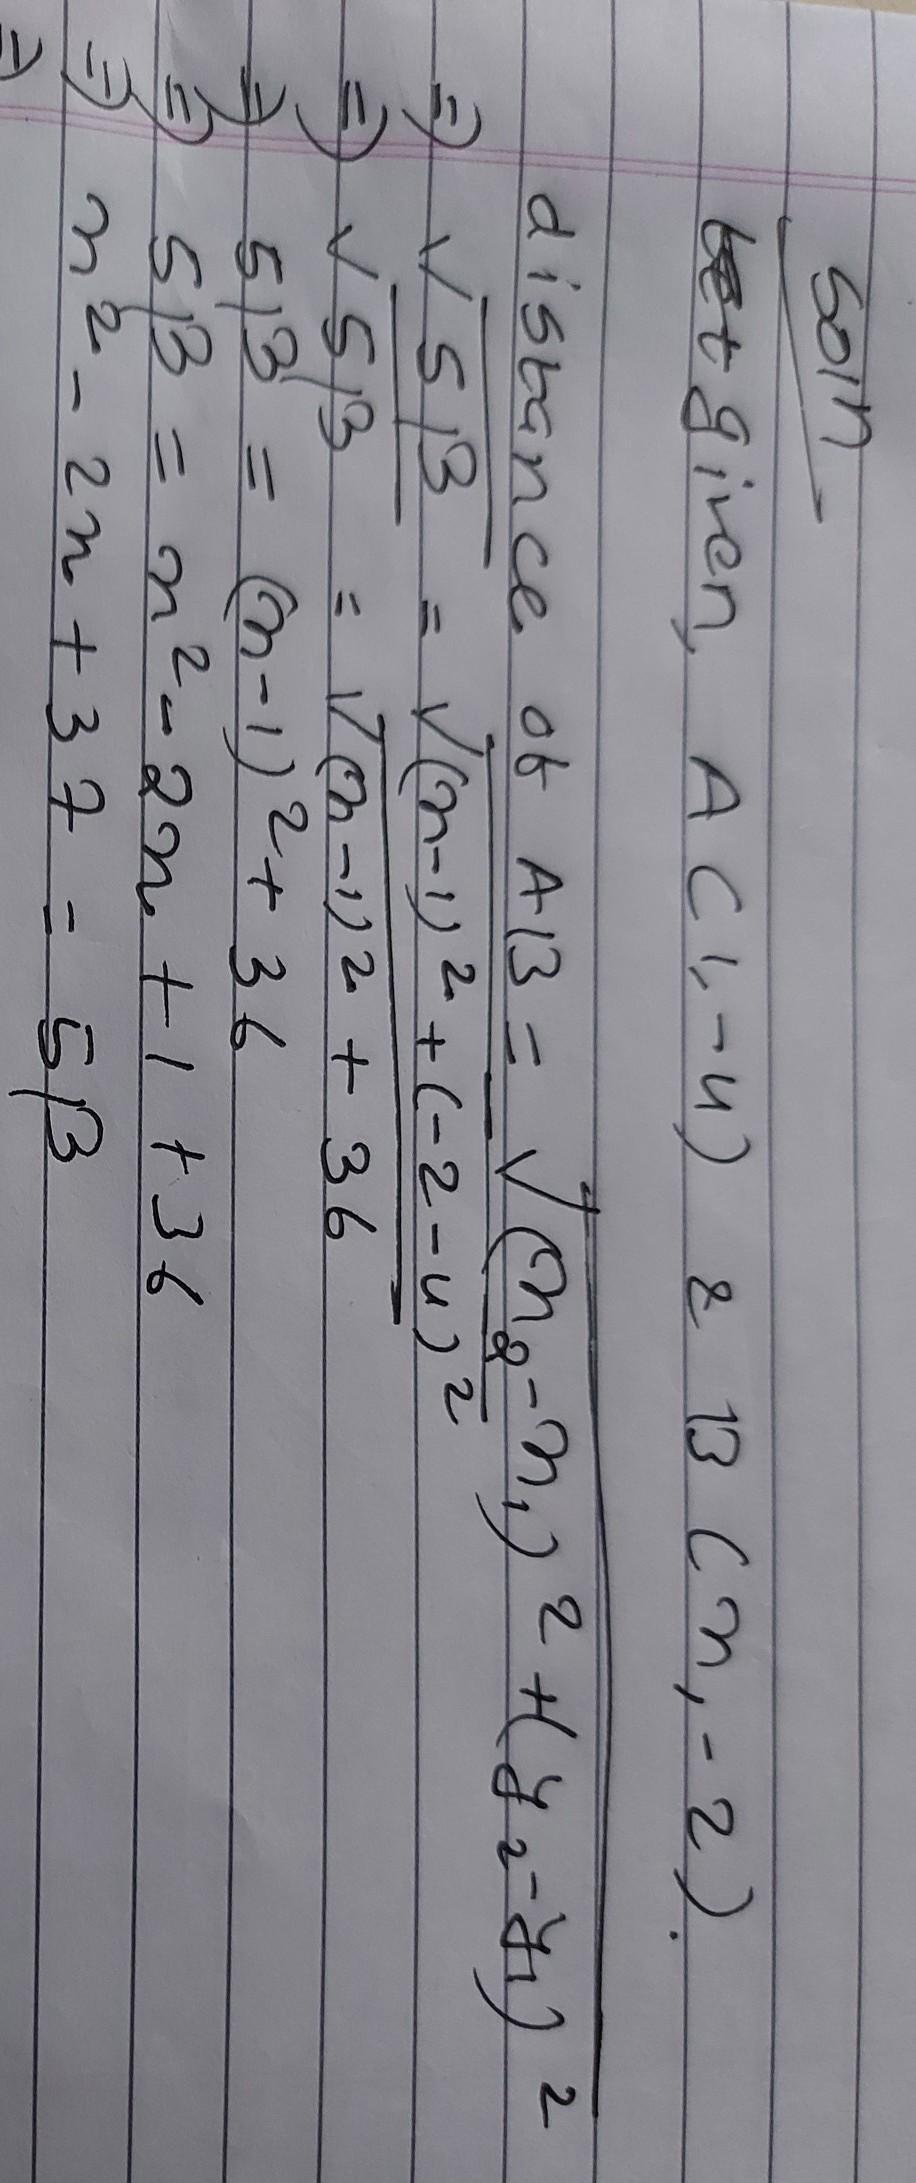 Soln
given, A(1,-4) & B(x,-2).
distance of AB = √(x₂-x₁)²+(y₂-y₁)²
⇒ √513 = √(x-1)²+(-2-4)²
⇒ √513 = √(x-1)²+36
⇒ 513 = (x-1)²+36
⇒ 513 = x²-2x+1+36
⇒ x²-2x+37 = 513
⇒